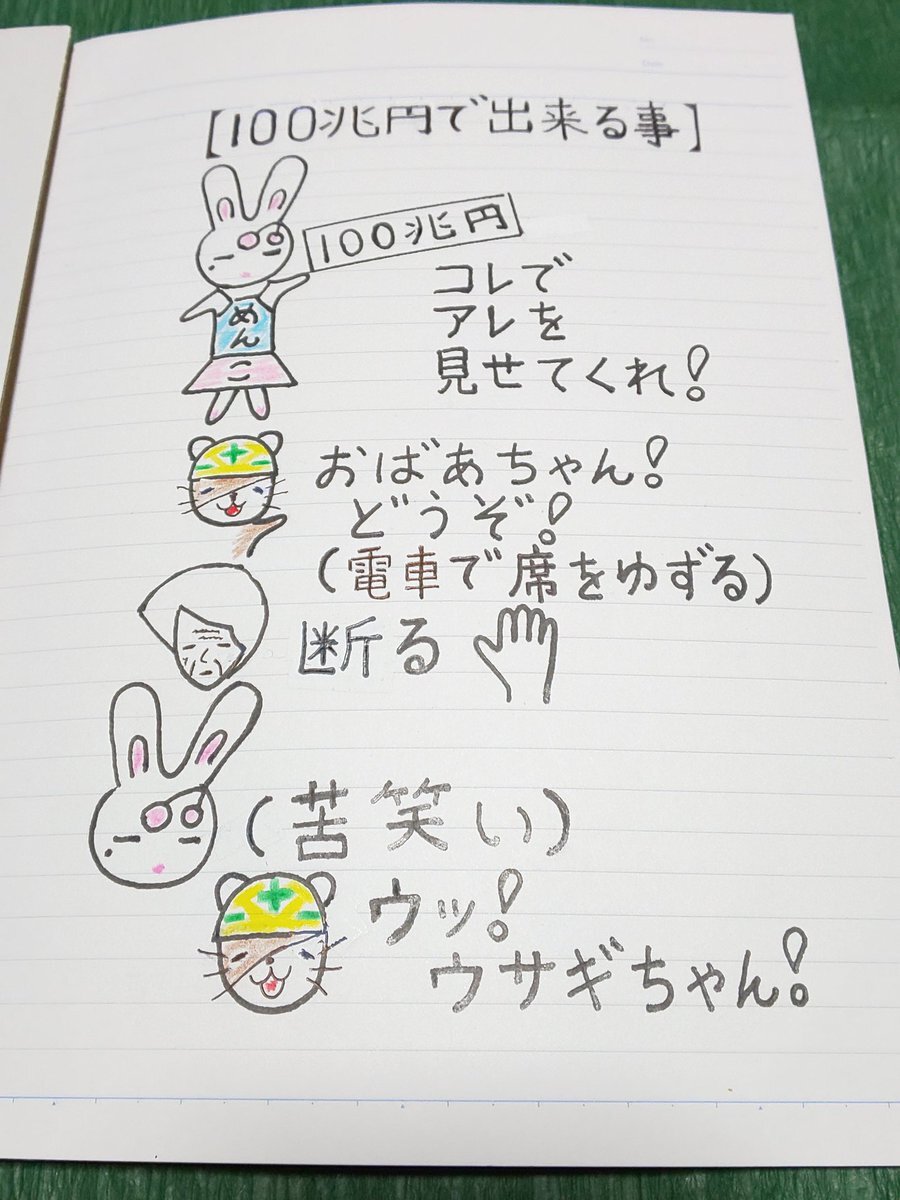 【100兆円で出来る事】
100兆円
コレで
アレを
見せてくれ!
めんこ
おばあちゃん!
どうぞ!
(電車で席をゆずる)
断る
(苦笑い)
ウッ!
ウサギちゃん!